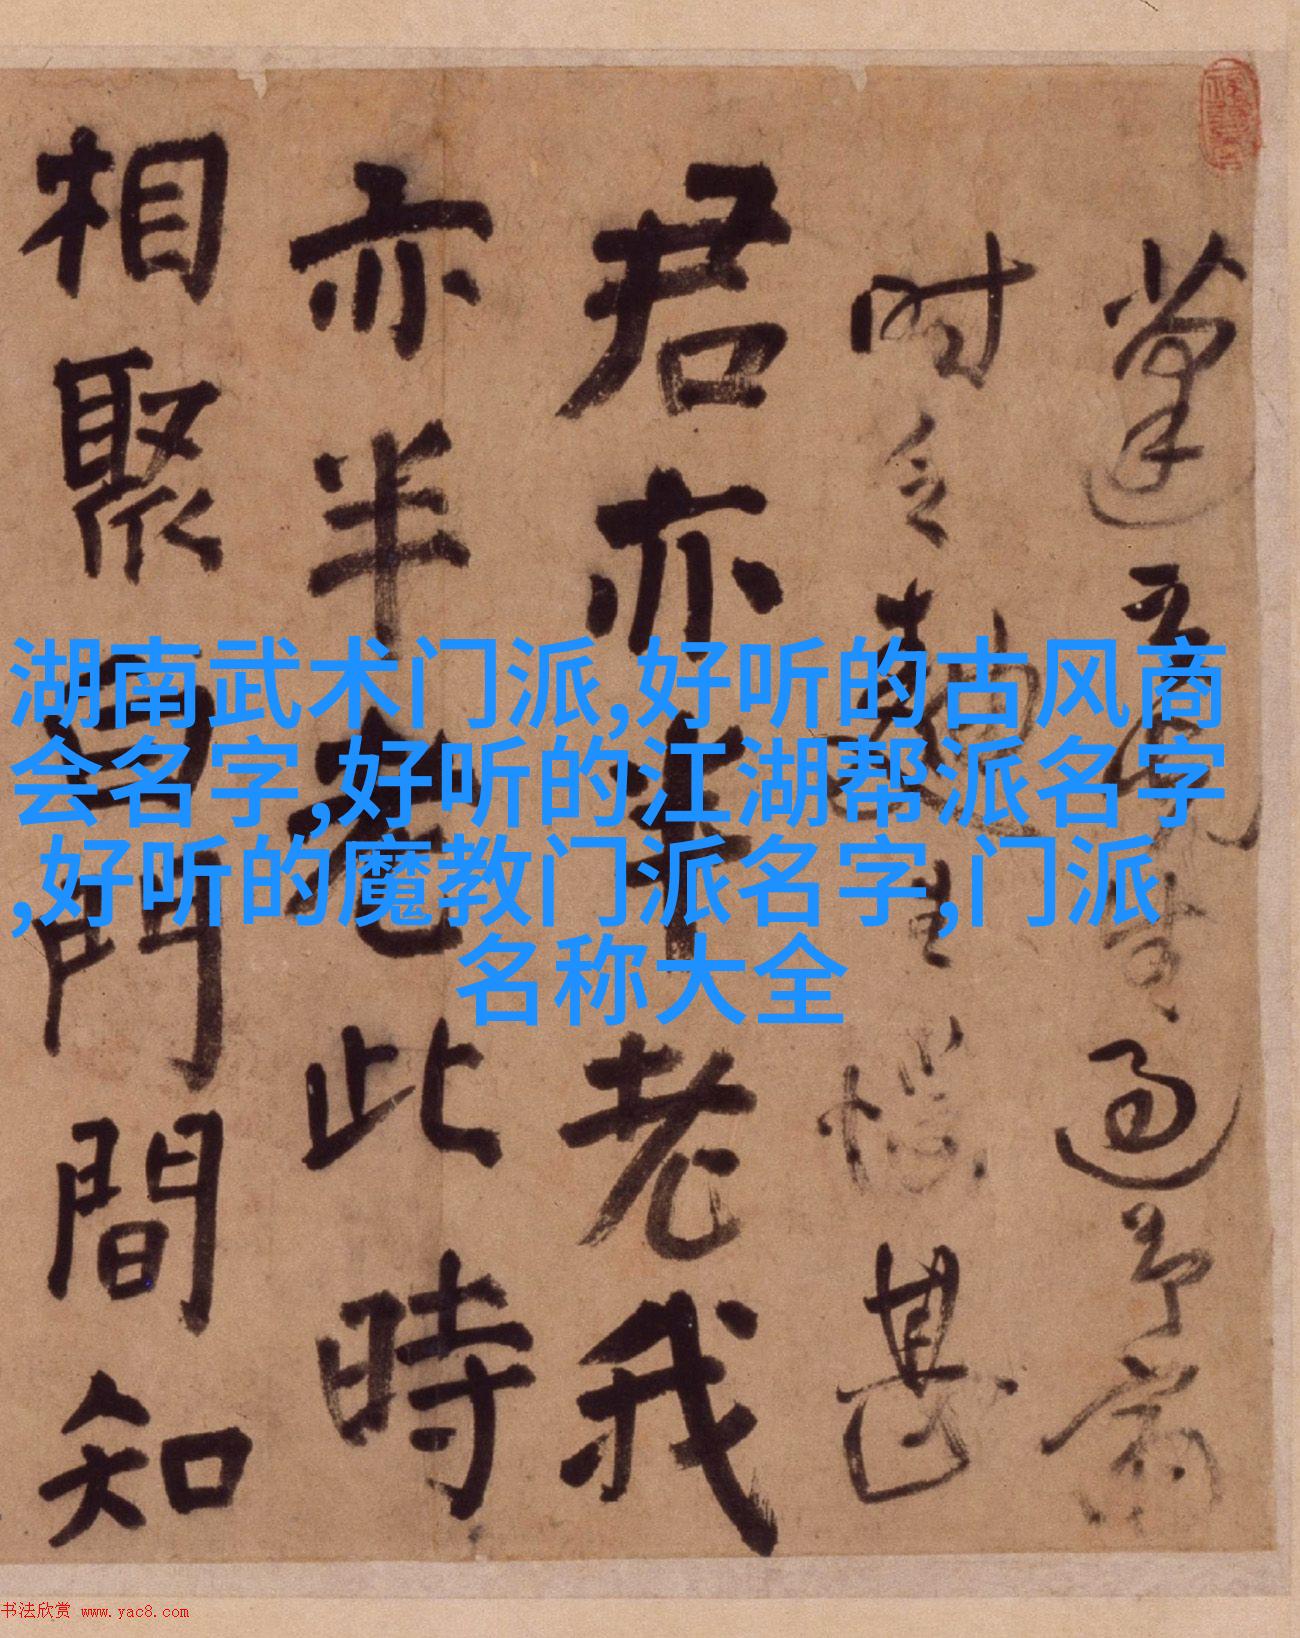 過予齋
時乏
生
甚
君亦半老我
亦半老此時
相聚昌門間知
湖南武术门派,好听的古风商
会名字,好听的江湖帮派名字
,好听的魔教门派名字,门派
名称大全
书法欣赏 www.yac8.com